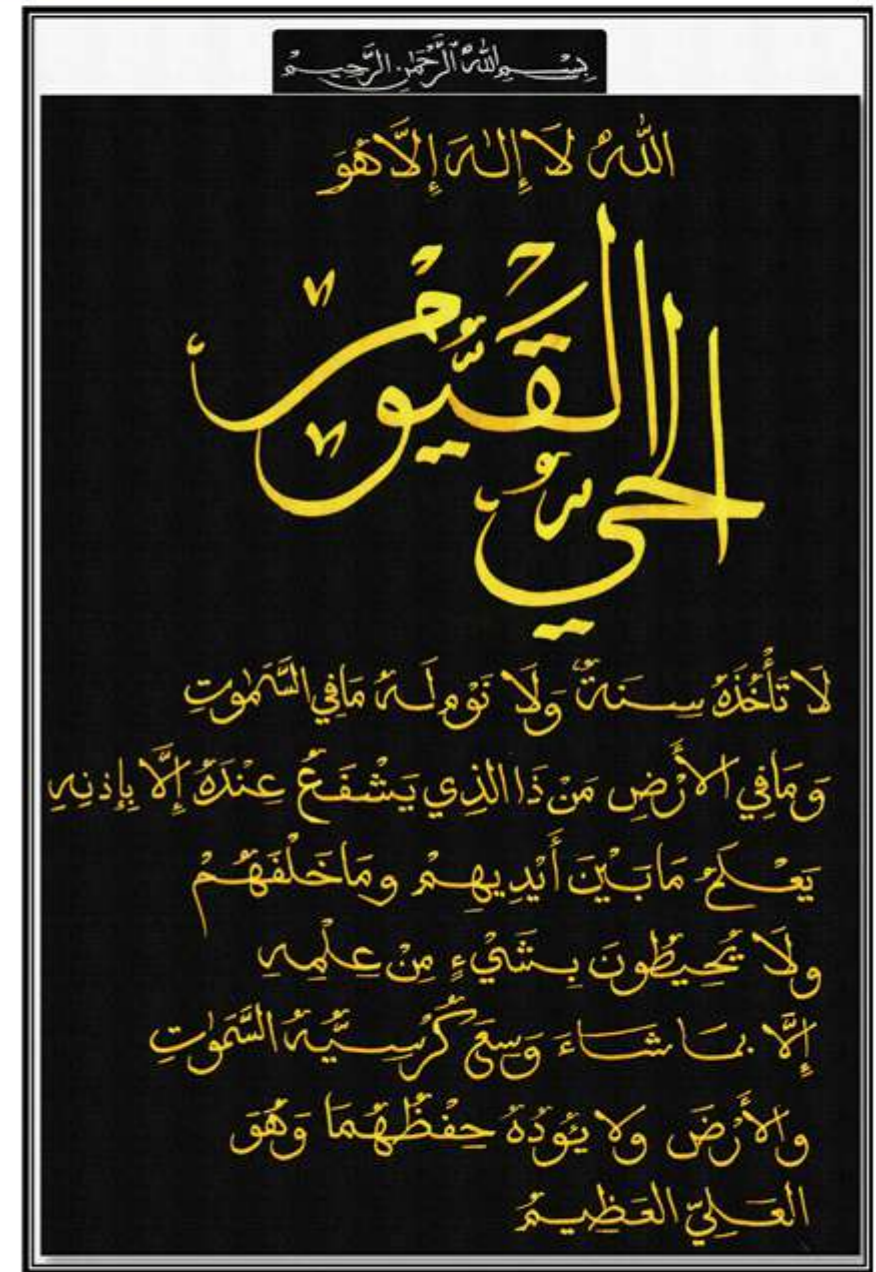 بِسْمِ اللهِ الرَّحْمٰنِ الرَّحِيمِ
اللهُ لَا إِلٰهَ إِلَّا هُوَ
الحَيُّ القَيُّومُ
لَا تَأْخُذُهُ سِنَةٌ وَلَا نَوْم لَهُ مَا فِي السَّمٰوٰتِ
وَمَا فِي الأَرْضِ مَنْ ذَا الذِي يَشْفَعُ عِنْدَهُ إِلَّا بِإِذنِهِ
يَعْلَمُ مَا بَيْنَ أَيْدِيهِمْ وَمَا خَلْفَهُمْ
وَلَا يُحِيطُونَ بِشَيْءٍ مِنْ عِلْمِهِ
إِلَّا بمَا شَاءَ وَسِعَ كُرْسِيُّهُ السَّمَوٰتِ
وَالأَرْضَ وَلا يَئُودُهُ حِفْظُهُمَا وَهُوَ
العَلِيّ العَظِيمُ